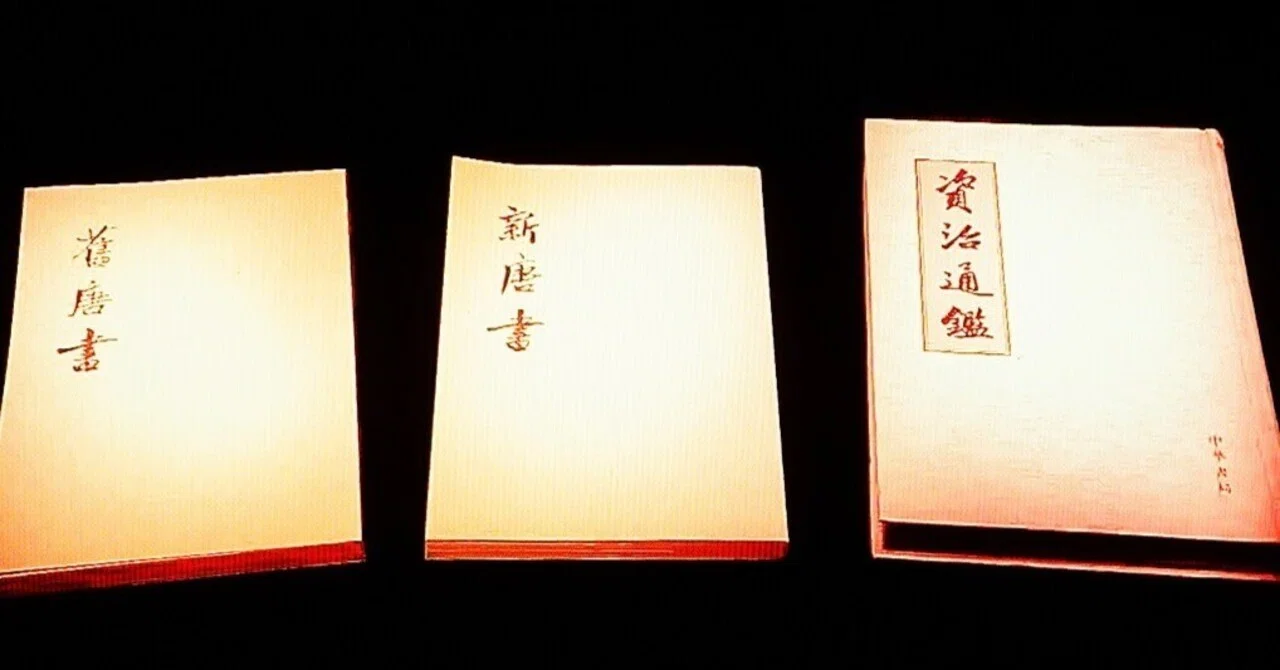 舊唐書
新唐書
資治通鑑
中華書局